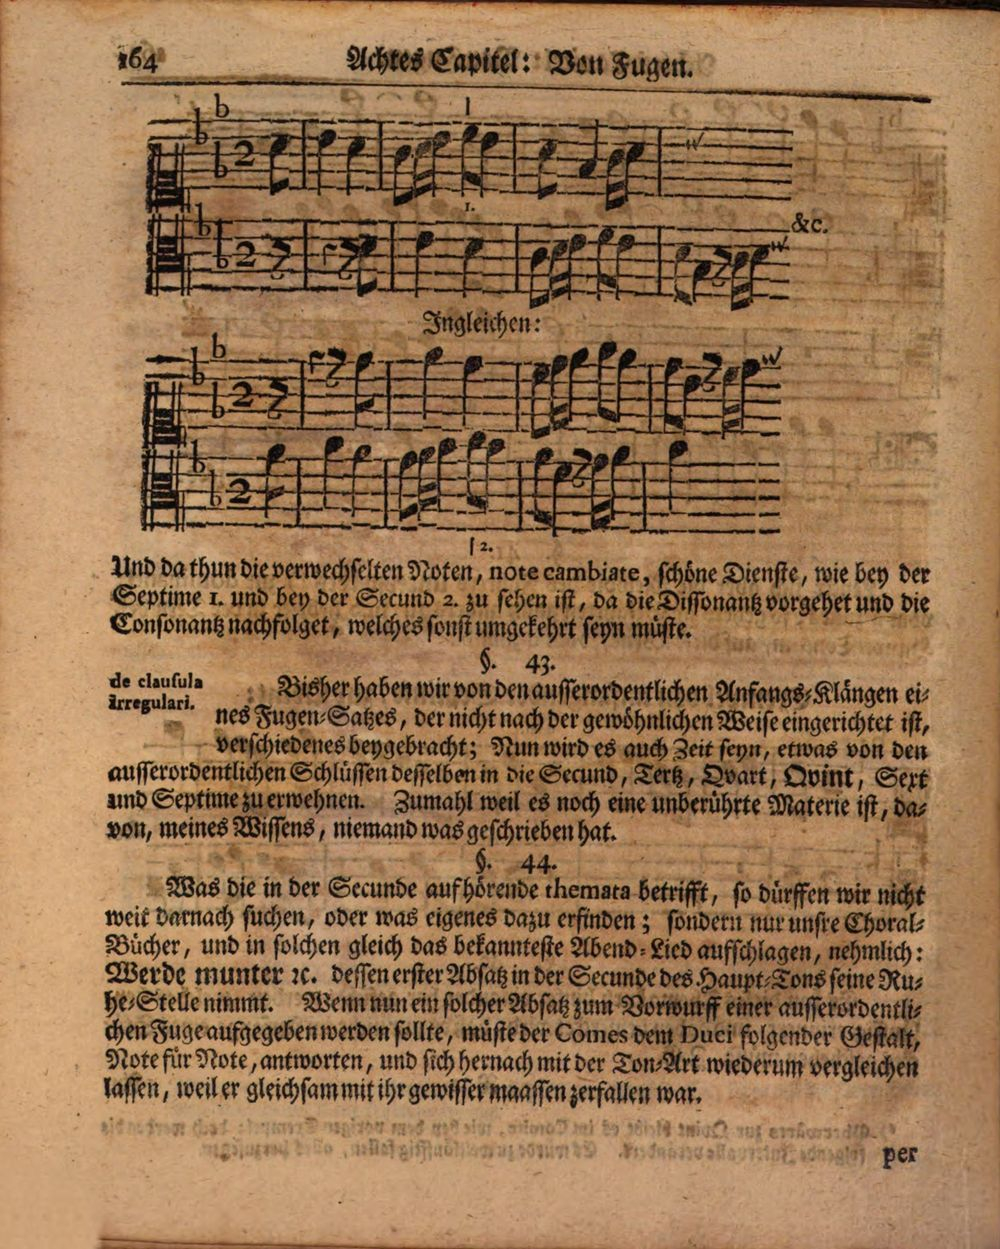 164 Achtes Capitel: Von Fugen.
1.
&c.
Ingleichen:
2.
Und da thun die verwechselten Noten, note cambiate, schöne Dienste, wie bey der
Septime 1. und bey der Secund 2. zu sehen ist, da die Dissonantz vorgehet und die
Consonantz nachfolget, welches sonst umgekehrt seyn müste.
§. 43.
de clausula
irregulari.
Bisher haben wir von den ausserordentlichen Anfangs-Klängen ei-
nes Fugen-Satzes, der nicht nach der gewöhnlichen Weise eingerichtet ist,
verschiedenes beygebracht; Nun wird es auch Zeit seyn, etwas von den
ausserordentlichen Schlüssen desselben in die Secund, Tertz, Qvart, Qvint, Sext
und Septime zu erwehnen. Zumahl weil es noch eine unberührte Materie ist, da-
von, meines Wissens, niemand was geschrieben hat.
§. 44.
Was die in der Secunde aufhörende themata betrifft, so dürffen wir nicht
weit darnach suchen, oder was eigenes dazu erfinden; sondern nur unsre Choral-
Bücher, und in solchen gleich das bekannteste Abend-Lied aufschlagen, nehmlich:
Werde munter ꝛc. dessen erster Absatz in der Secunde des Haupt-Tons seine Ru-
he-Stelle nimmt. Wenn nun ein solcher Absatz zum Vorwurff einer ausserordentli-
chen Fuge aufgegeben werden sollte, müste der Comes dem Duci folgender Gestalt,
Note für Note, antworten, und sich hernach mit der Ton-Art wiederum vergleichen
lassen, weil er gleichsam mit ihr gewisser maassen zerfallen war.
per